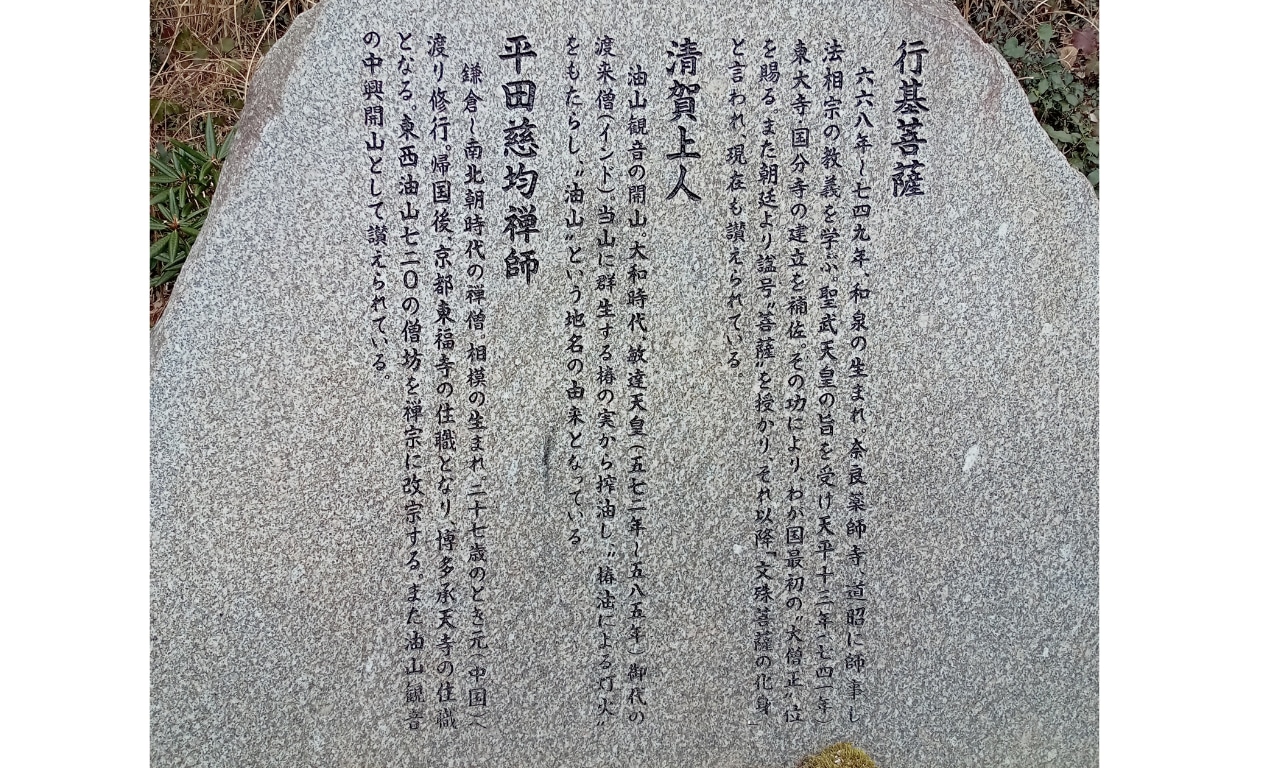 行基菩薩
六六八年~七四九年、和泉の生まれ。奈良薬師寺、道昭に師事し
法相宗の教義を学ぶ 聖武天皇の旨を受け天平十三年(七四一年)
東大寺・国分寺の建立を補佐。その功により、わが国最初の"大僧正"位
を賜る。また朝廷より諡号"菩薩"を授かり、それ以降「文殊菩薩の化身」
と言われ、現在も讃えられている。
清賀上人
油山観音の開山。大和時代、敏達天皇(五七二年~五八五年)御代の
渡来僧(インド)。当山に群生する椿の実から搾油し、"椿油による灯火"
をもたらし、"油山"という地名の由来となっている。
平田慈均禅師
鎌倉~南北朝時代の禅僧。相模の生まれ 二十七歳のとき元(中国)へ
渡り修行。帰国後、京都東福寺の住職となり、博多承天寺の住職
となる。東西油山七二〇の僧坊を禅宗に改宗する。また油山観音
の中興開山として讃えられている。